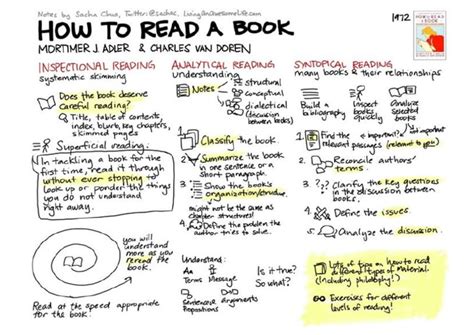 Notes by Sacha Chua, Twitter: @sachac, LivingAnAwesomeLife.com
HOW TO READ A BOOK
MORTIMER J. ADLER & CHARLES VAN DOREN
1972
HOW TO READ A BOOK
INSPECTIONAL READING
systematic skimming
Does the book deserve
careful reading?
Title, table of contents,
index, blurb, key chapters,
skimmed pages
Superficial reading:
In tackling a book for the
first time, read it through
without ever stopping to
look up or ponder the things
you do not understand
right away.
you will
understand
more as
you reread
the book.
Read at the speed appropriate
for the book.
ANALYTICAL READING
understanding
Notes
structural
conceptual
dialectical
(discussion
between books)
1. Classify the book.
2. Summarize the book
in one sentence or a
short paragraph.
3. Show the book's
organization/structure.
might not be the same as
chapter structures!
4. Define the problem the
author tries to solve.
Understand:
Aa
Terms
Message
Sentences
Arguments
Propositions
Is it true?
So what?
SYNTOPICAL READING
many books & their relationships
Build a
bibliography
Inspect
books
quickly
Analyze
selected
books
1. Find the
relevant passages
important?
important!
(relevant to you!)
2. Reconcile authors'
terms.
3. Clarify the key questions
in the discussion between
books.
4. Define the issues.
5. Analyze the discussion.
Lots of tips on how to read
different types of material.
(Including philosophy!)
Exercises for different
levels of reading!